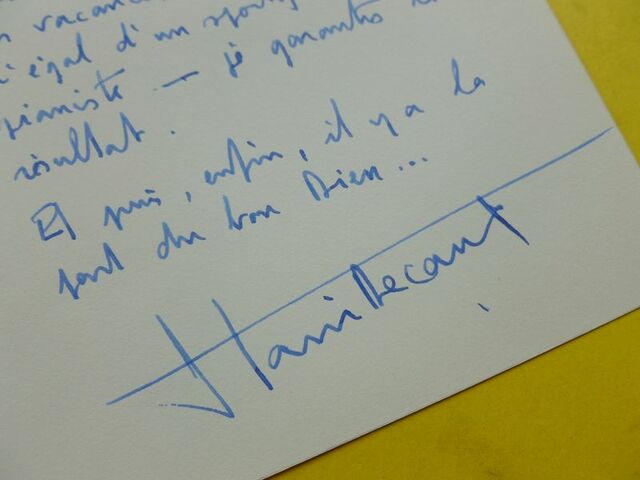 vacanc
égal d'un sporti
pianiste — je garantis
résultat.
Et puis, enfin, il y a la
part du bon Dieu...